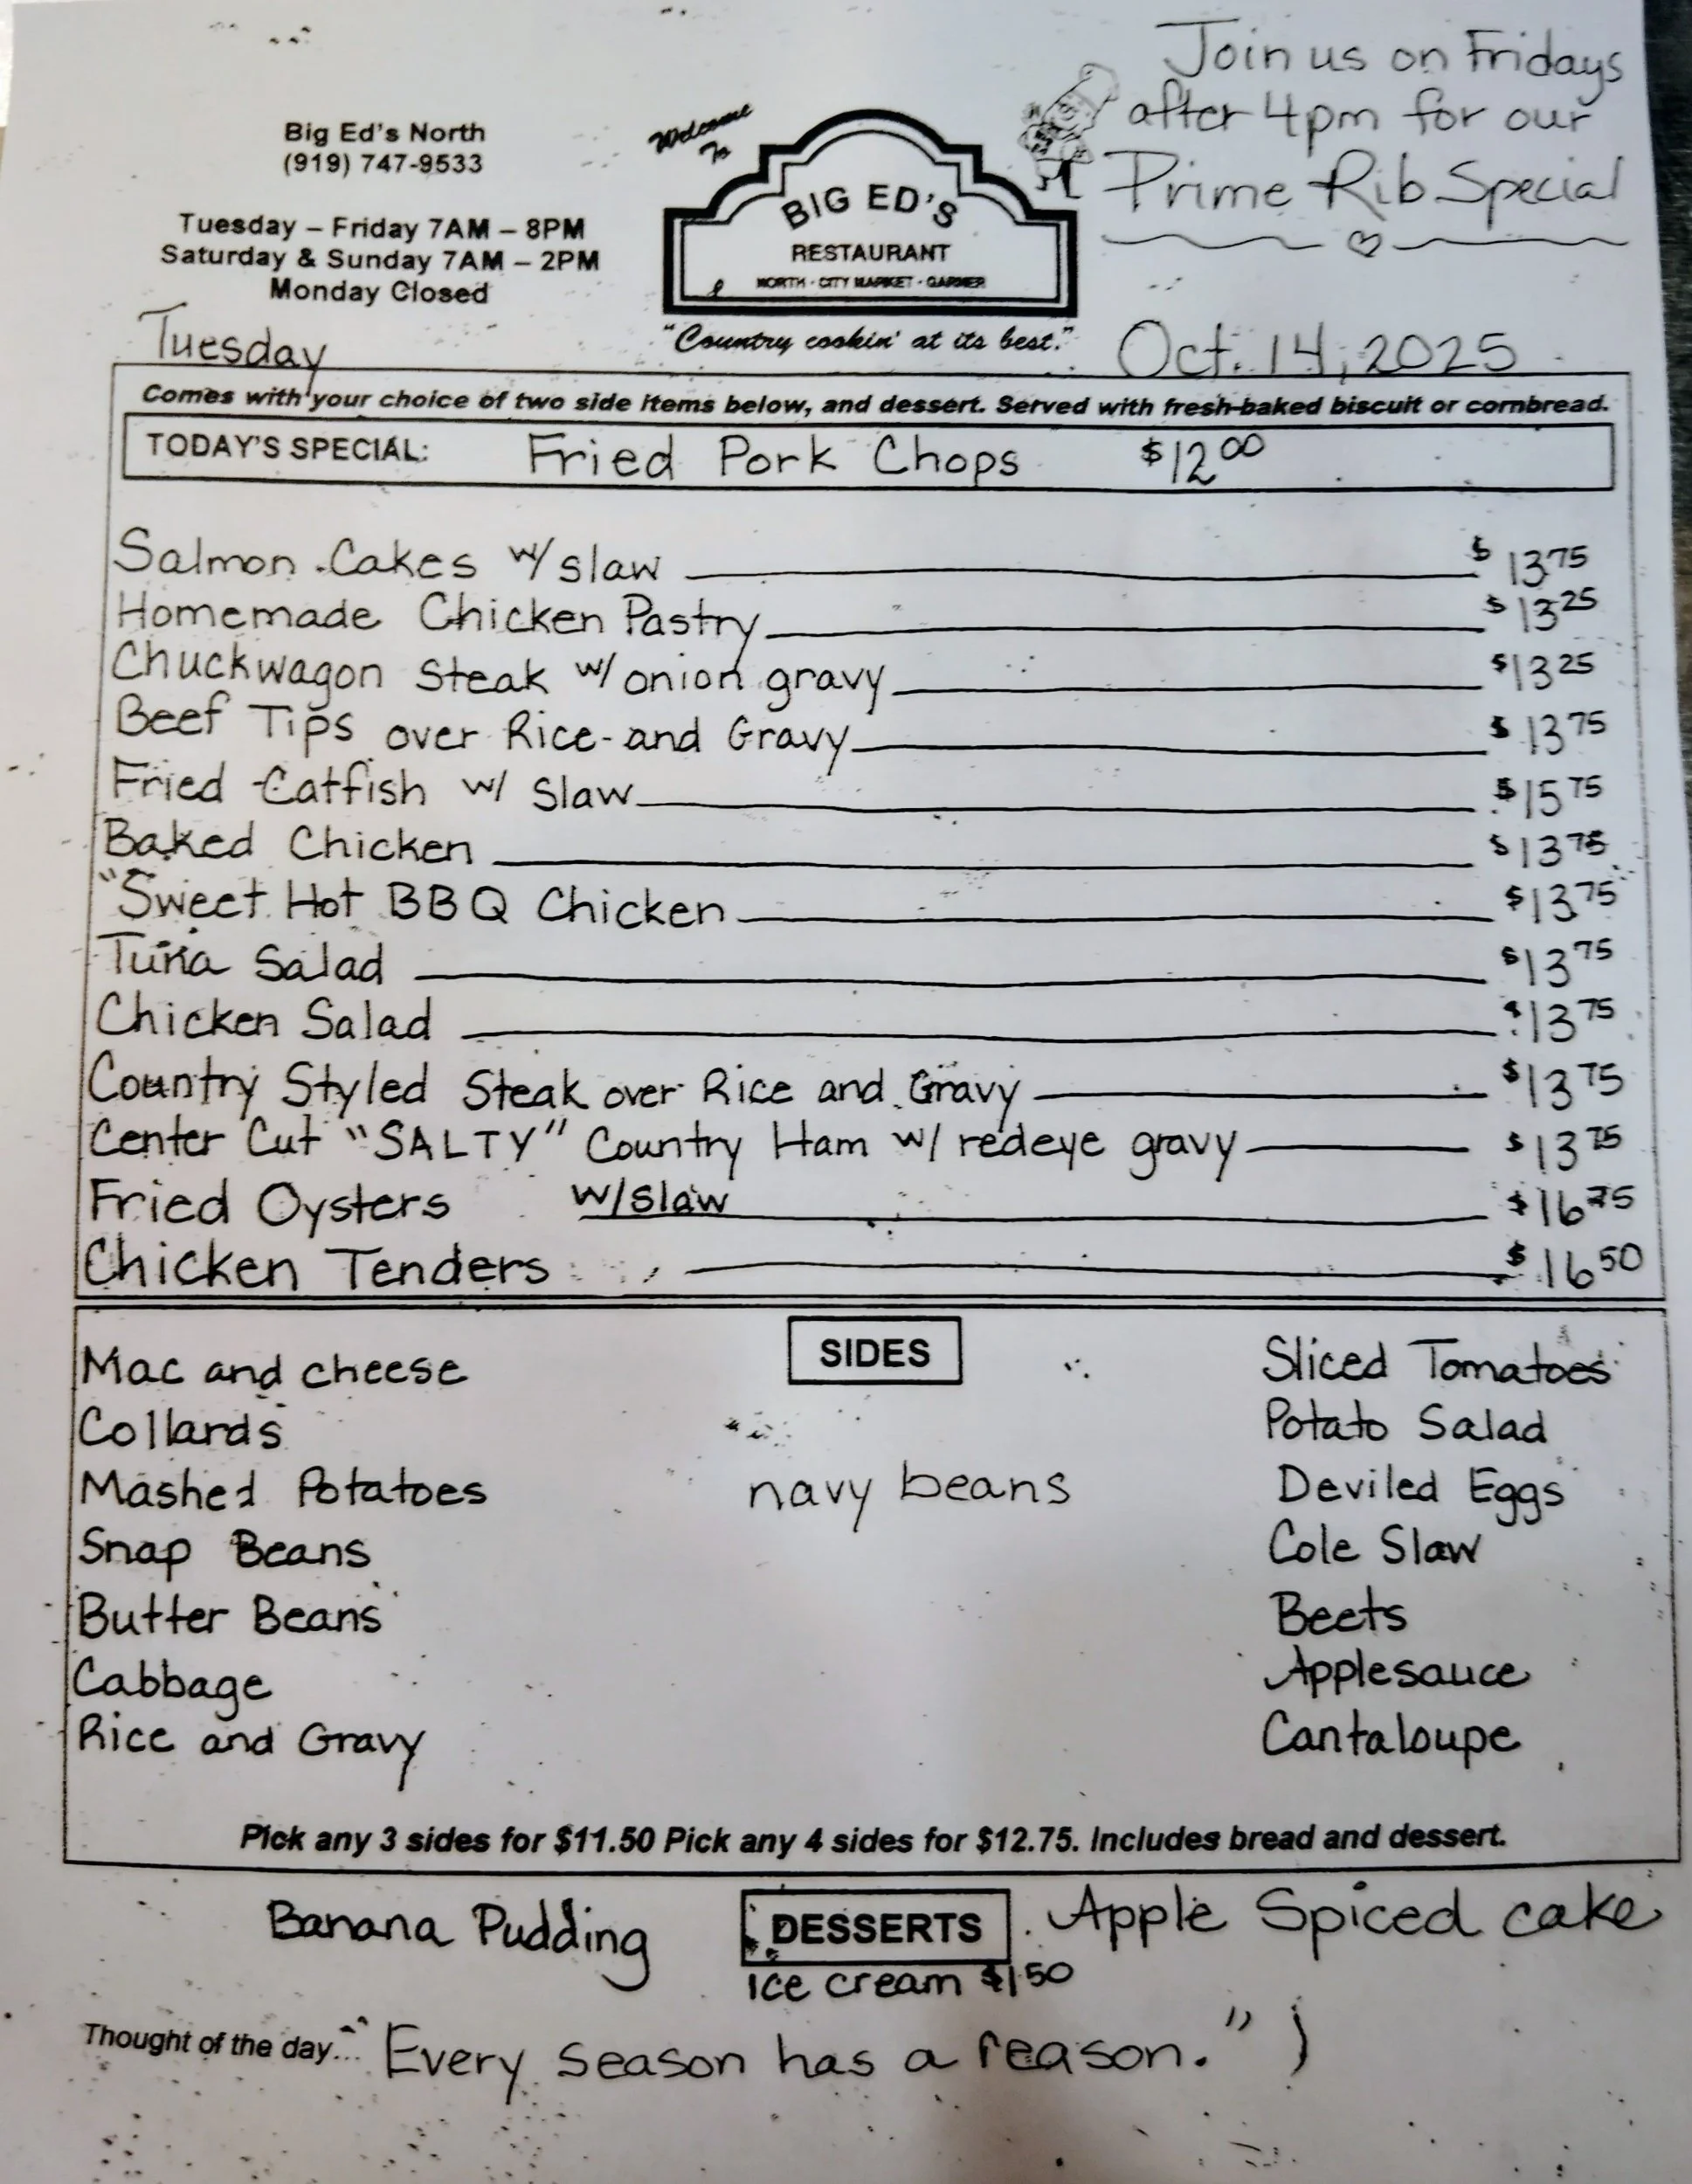 Join us on Fridays
after 4pm for our
Prime Rib Special
Big Ed's North
(919) 747-9533
Tuesday – Friday 7AM – 8PM
Saturday & Sunday 7AM – 2PM
Monday Closed
Welcome
To
BIG ED'S
RESTAURANT
NORTH · CITY MARKET · GARNER
"Country cookin' at its best."
Tuesday
Oct. 14, 2025
Comes with your choice of two side items below, and dessert. Served with fresh-baked biscuit or cornbread.
TODAY'S SPECIAL: Fried Pork Chops $12.00
Salmon Cakes w/ slaw $13.75
Homemade Chicken Pastry $13.25
Chuckwagon Steak w/ onion gravy $13.25
Beef Tips over Rice and Gravy $13.75
Fried Catfish w/ Slaw $15.75
Baked Chicken $13.75
"Sweet Hot BBQ Chicken $13.75
Tuna Salad $13.75
Chicken Salad $13.75
Country Styled Steak over Rice and Gravy $13.75
Center Cut "SALTY" Country Ham w/ redeye gravy $13.75
Fried Oysters w/slaw $16.75
Chicken Tenders $16.50
SIDES
Mac and cheese
Collards
Mashed Potatoes
Snap Beans
Butter Beans
Cabbage
Rice and Gravy
navy beans
Sliced Tomatoes
Potato Salad
Deviled Eggs
Cole Slaw
Beets
Applesauce
Cantaloupe
Pick any 3 sides for $11.50 Pick any 4 sides for $12.75. Includes bread and dessert.
Banana Pudding DESSERTS Apple Spiced cake
ice cream $1.50
Thought of the day... "Every season has a reason."